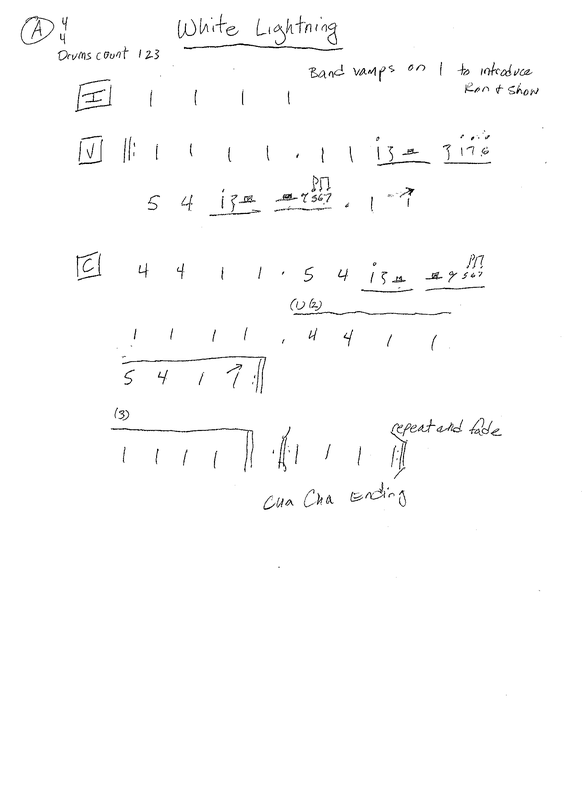 A 4/4 White Lightning
Drums count 123
Band vamps on 1 to introduce
Ron + Show
I 1 1 1 1
V 1 1 1 1 . 1 1 i 3 - 3 1 7 6
5 4 i 3 - - 7 567 . 1 1
C 4 4 1 1 . 5 4 i 3 - - 7 567
(1)(2)
1 1 1 1 . 4 4 1 1
5 4 1 1
(3)
repeat and fade
1 1 1 1 . 1 1 1 1
Cha Cha Ending